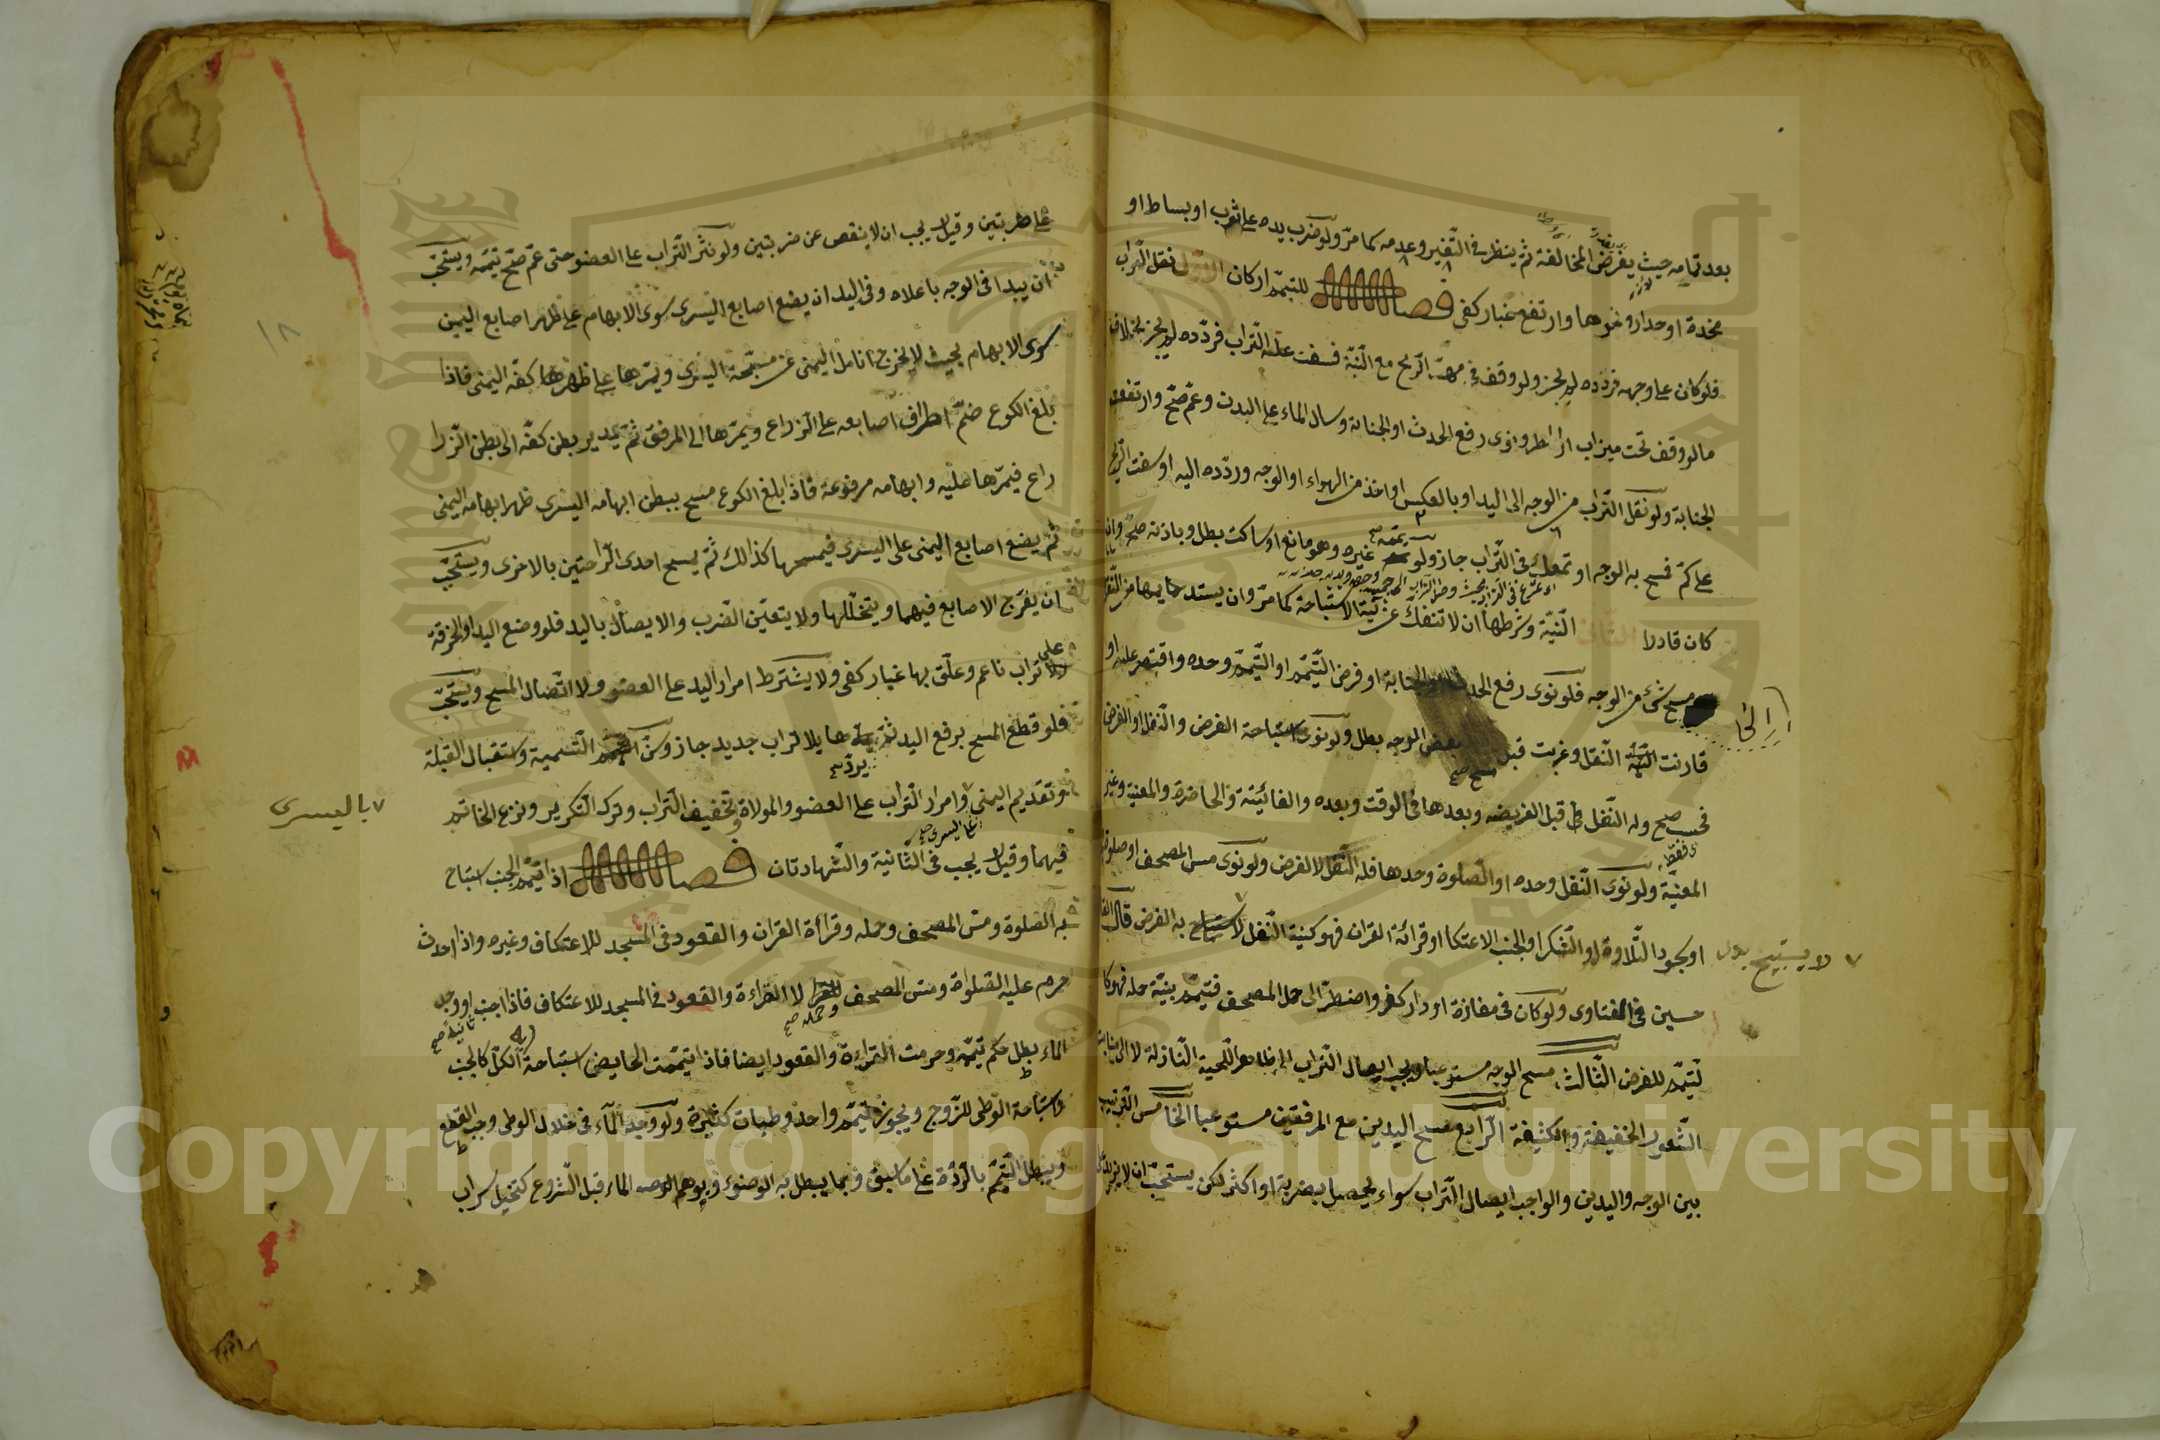 بعد تمامه حيث يفرض المخالفة ثم ينظر في التغير وعدمه كما مر ولو ضرب يده على ثوب او بساط او
مخدة او جدار ونحوها وارتفع غبار كفى فصل للتيمم اركان الاول نقل التراب
فلو كان على وجهه فردده لم يجز ولو وقف في مهب الريح مع النية فسفت عليه التراب فردده لم يجز بخلاف
ما لو وقف تحت ميزاب او ونوى رفع الحدث او الجنابة وسال الماء على البدن وعم صح وارتفعت
الجنابة ولو نقل التراب من الوجه الى اليد او بالعكس او اخذ من الهواء او الوجه وردده اليه او سفت الريح
على كم فمسح به الوجه او تمعك في التراب جاز ولو يممه غيره وهو مانع او ساكت بطل وباذنه صح وان
كان قادرا الثاني النية وشرطها ان لا تنفك عن نية الاستباحة كما مر وان يستديمها من النقل
الى مسح شئ من الوجه فلو نوى رفع الحدث او الجنابة او فرض التيمم او التيمم وحده واقتصر عليه او
قارنت النية النقل وعزبت قبل مسح بعض الوجه بطل ولو نوى استباحة الفرض والنفل او الفرض
فحسب صح وله النفل قبل الفريضه وبعدها في الوقت وبعده والفائتة والحاضرة والمعنية وغير
المعنية ولو نوى النفل وحده او الصلوة وحدها فله النفل لا الفرض ولو نوى مس المصحف او صلوة
او سجود التلاوة او الشكر او الجنب الاعتكا او قرائة القران فهو كنية النفل لا يستبيح به الفرض قال القا
حسين في الفتاوى ولو كان في مفازة او دار كفر واضطر الى حمل المصحف فتيمم بنية حمله فهو كا
لتيمم للفرض الثالث مسح الوجه مستوعبا ويجب ايصال التراب الى ظاهر اللحية النازلة لا الى منابت
الشعور الخفيفة والكثيفة الرابع مسح اليدين مع المرفقين مستوعبا الخامس الترتيب
بين الوجه واليدين والواجب ايصال التراب سواء يحصل بضربة او اكثر لكن يستحب ان لا يزيد
الى
لا يستبيح
على ضربتين وقيل يجب ان لا ينقص عن ضربتين ولو نثر التراب على العضو حتى عم صح تيممه ويستحب
ان يبدا في الوجه باعلاه وفي اليد ان يضع اصابع اليسرى سوى الابهام على ظهر اصابع اليمين
سوى الابهام بحيث لا يخرج انامل اليمنى عن مسبحة اليسرى ويمرها على ظهر كفه اليمنى فاذا
بلغ الكوع ضم اطراف اصابعه على الزراع ويمرها الى المرفق ثم يدير بطن كفه الى بطن الزرا
راع فيمرها عليه وابهامه مرفوعة فاذا بلغ الكوع مسح ببطن ابهامه اليسرى ظهر ابهامه اليمنى
ثم يضع اصابع اليمنى على اليسرى فيمسحها كذالك ثم يمسح احدى الراحتين بالاخرى ويستحب
ان يفرج الاصابع فيهما ويتخللها ولا يتعين الضرب والايصال باليد فلو وضع اليد او الخرقة
على تراب ناعم وعلق بها غبار كفى ولا يشترط امرار اليد على العضو ولا اتصال المسح ويستحب
فلو قطع المسح برفع اليد ثم يردها بلا تراب جديد جاز وسن التسمية واستقبال القبلة
وتقديم اليمنى وامرار التراب على العضو والمولاة وتخفيف التراب وترك التكرير ونزع الخاتم
فيهما وقيل يجب في الثانية والشهادتان فصل اذا تيمم الجنب استباح
به الصلوة ومس المصحف وحمله وقرأة القران والقعود في المسجد للاعتكاف وغيره واذا احدث
حرم عليه الصلوة ومس المصحف وحمله لا القراءة والقعود في المسجد للاعتكاف فاذا اجنب او وجد
الماء بطل حكم تيممه وحرمت القراءة والقعود ايضا فاذا تيممت الحايض استباحة الكل كالجنب
واستباحة الوطى للزوج ويجوز بتيمم واحد وطيات كثيرة ولو وجد الماء في خلال الوطى وجب القطع
ويبطل التيمم بالردة على ما سبق وبما يبطل به الوضوء وبوهم الماء قبل الشروع كتخيل سراب
باليسرى
١٨
Copyright © King Saud University